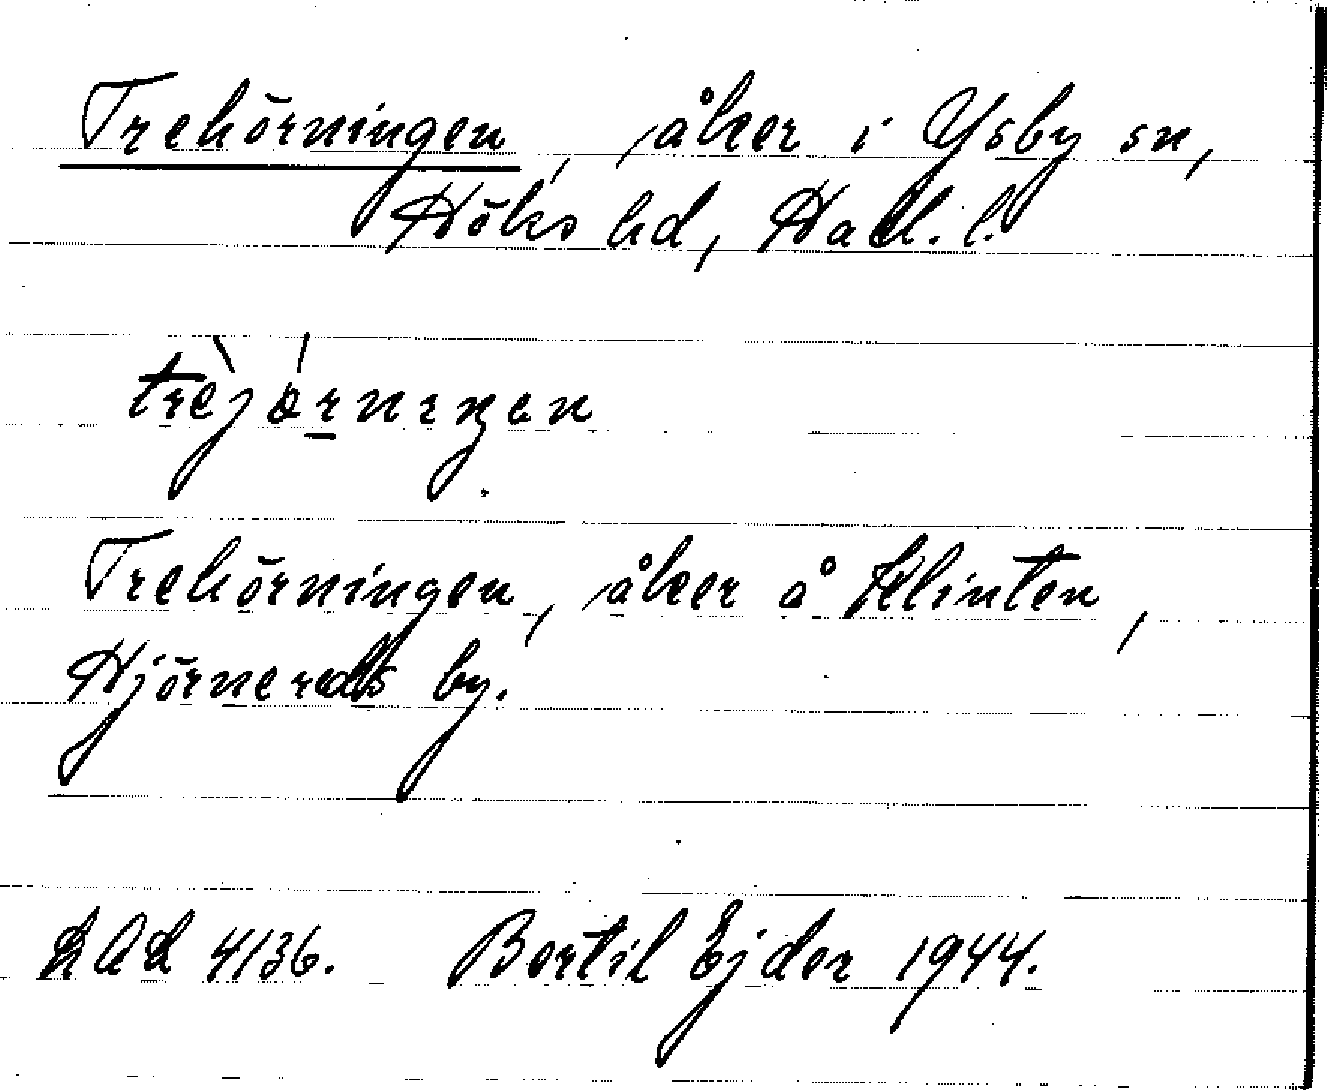 Trehörningen, åker i Ysby sn,
Höks hd, Hall. l.
trèjö́rnıŋen
Trehörningen, åker å Klinten,
Hjörnereds by.
LAL 4136. Bertil Ejder 1944.